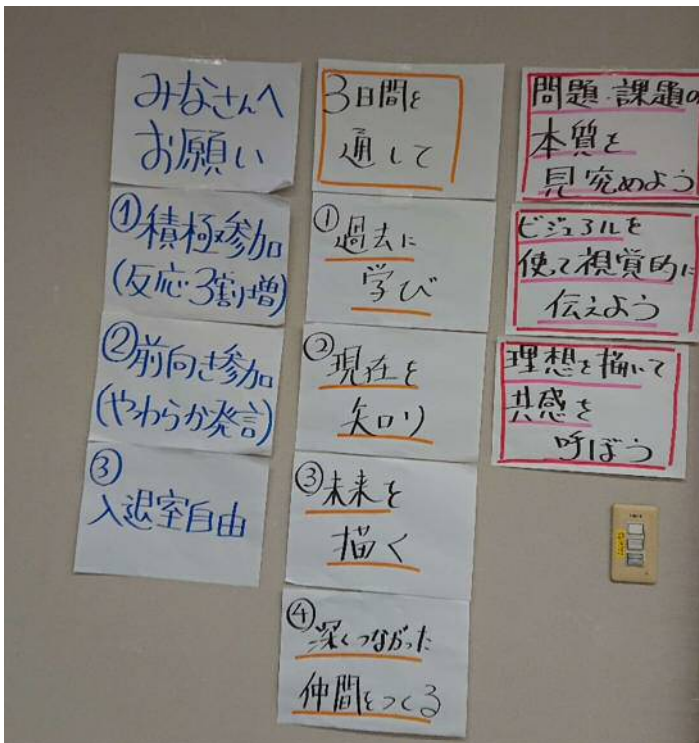 みなさんへ
お願い
①積極参加
(反応3割増)
②前向き参加
(やわらか発言)
③
入退室自由
3日間を
通して
①過去に
学び
②現在を
知り
③未来を
描く
④深くつながった
仲間をつくる
問題・課題の
本質を
見究めよう
ビジュアルを
使って視覚的に
伝えよう
理想を描いて
共感を
呼ぼう